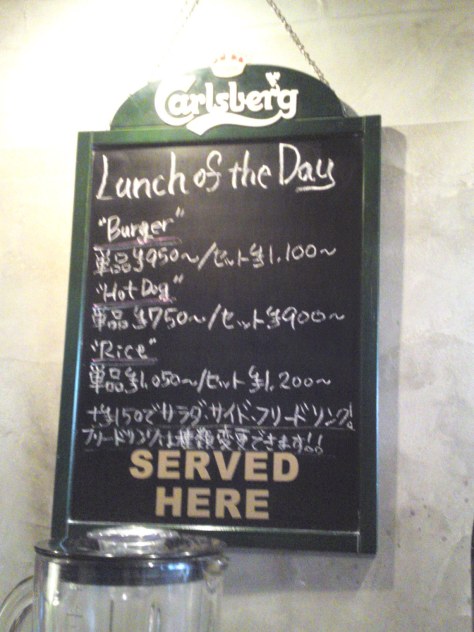 Carlsberg
Lunch of the Day
"Burger"
単品¥950〜/セット¥1.100〜
"Hot Dog"
単品¥750〜/セット¥900〜
"Rice"
単品¥1.050〜/セット¥1.200〜
+¥150でサラダ・サイド・フリードリンク!
フリードリンクは種類変更できます!!
SERVED
HERE